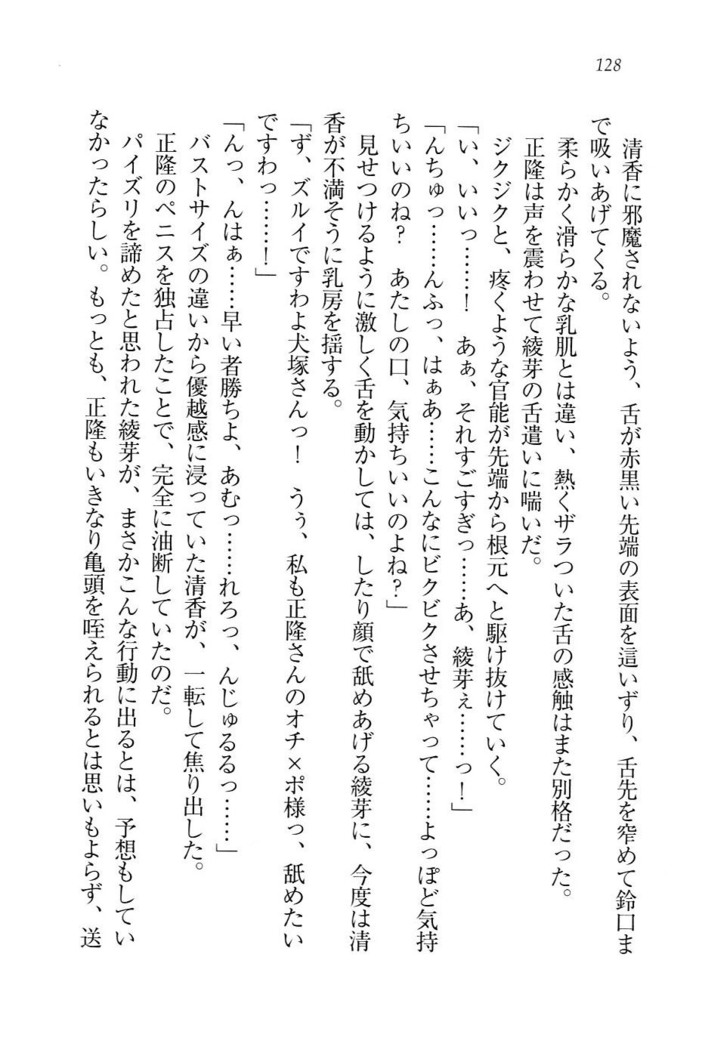 128
清香に邪魔されないよう、舌が赤黒い先端の表面を這いずり、舌先を窄めて鈴口ま
で吸いあげてくる。
柔らかく滑らかな乳肌とは違い、熱くザラついた舌の感触はまた別格だった。
正隆は声を震わせて綾芽の舌遣いに喘いだ。
ジクジクと、疼くような官能が先端から根元へと駆け抜けていく。
「い、いいっ……！　あぁ、それすごすぎっ……あ、綾芽ぇ……っ！」
「んちゅっ……んふっ、はぁあ……こんなにビクビクさせちゃって……よっぽど気持
ちいいのね？　あたしの口、気持ちいいのよね？」
見せつけるように激しく舌を動かしては、したり顔で舐めあげる綾芽に、今度は清
香が不満そうに乳房を揺する。
「ず、ズルイですわよ犬塚さんっ！　うぅ、私も正隆さんのオチ×ポ様っ、舐めたい
ですわっ……！」
「んっ、んはぁ……早い者勝ちよ、あむっ……れろっ、んじゅるるっ……」
バストサイズの違いから優越感に浸っていた清香が、一転して焦り出した。
正隆のペニスを独占したことで、完全に油断していたのだ。
パイズリを諦めたと思われた綾芽が、まさかこんな行動に出るとは、予想もしてい
なかったらしい。もっとも、正隆もいきなり亀頭を咥えられるとは思いもよらず、送